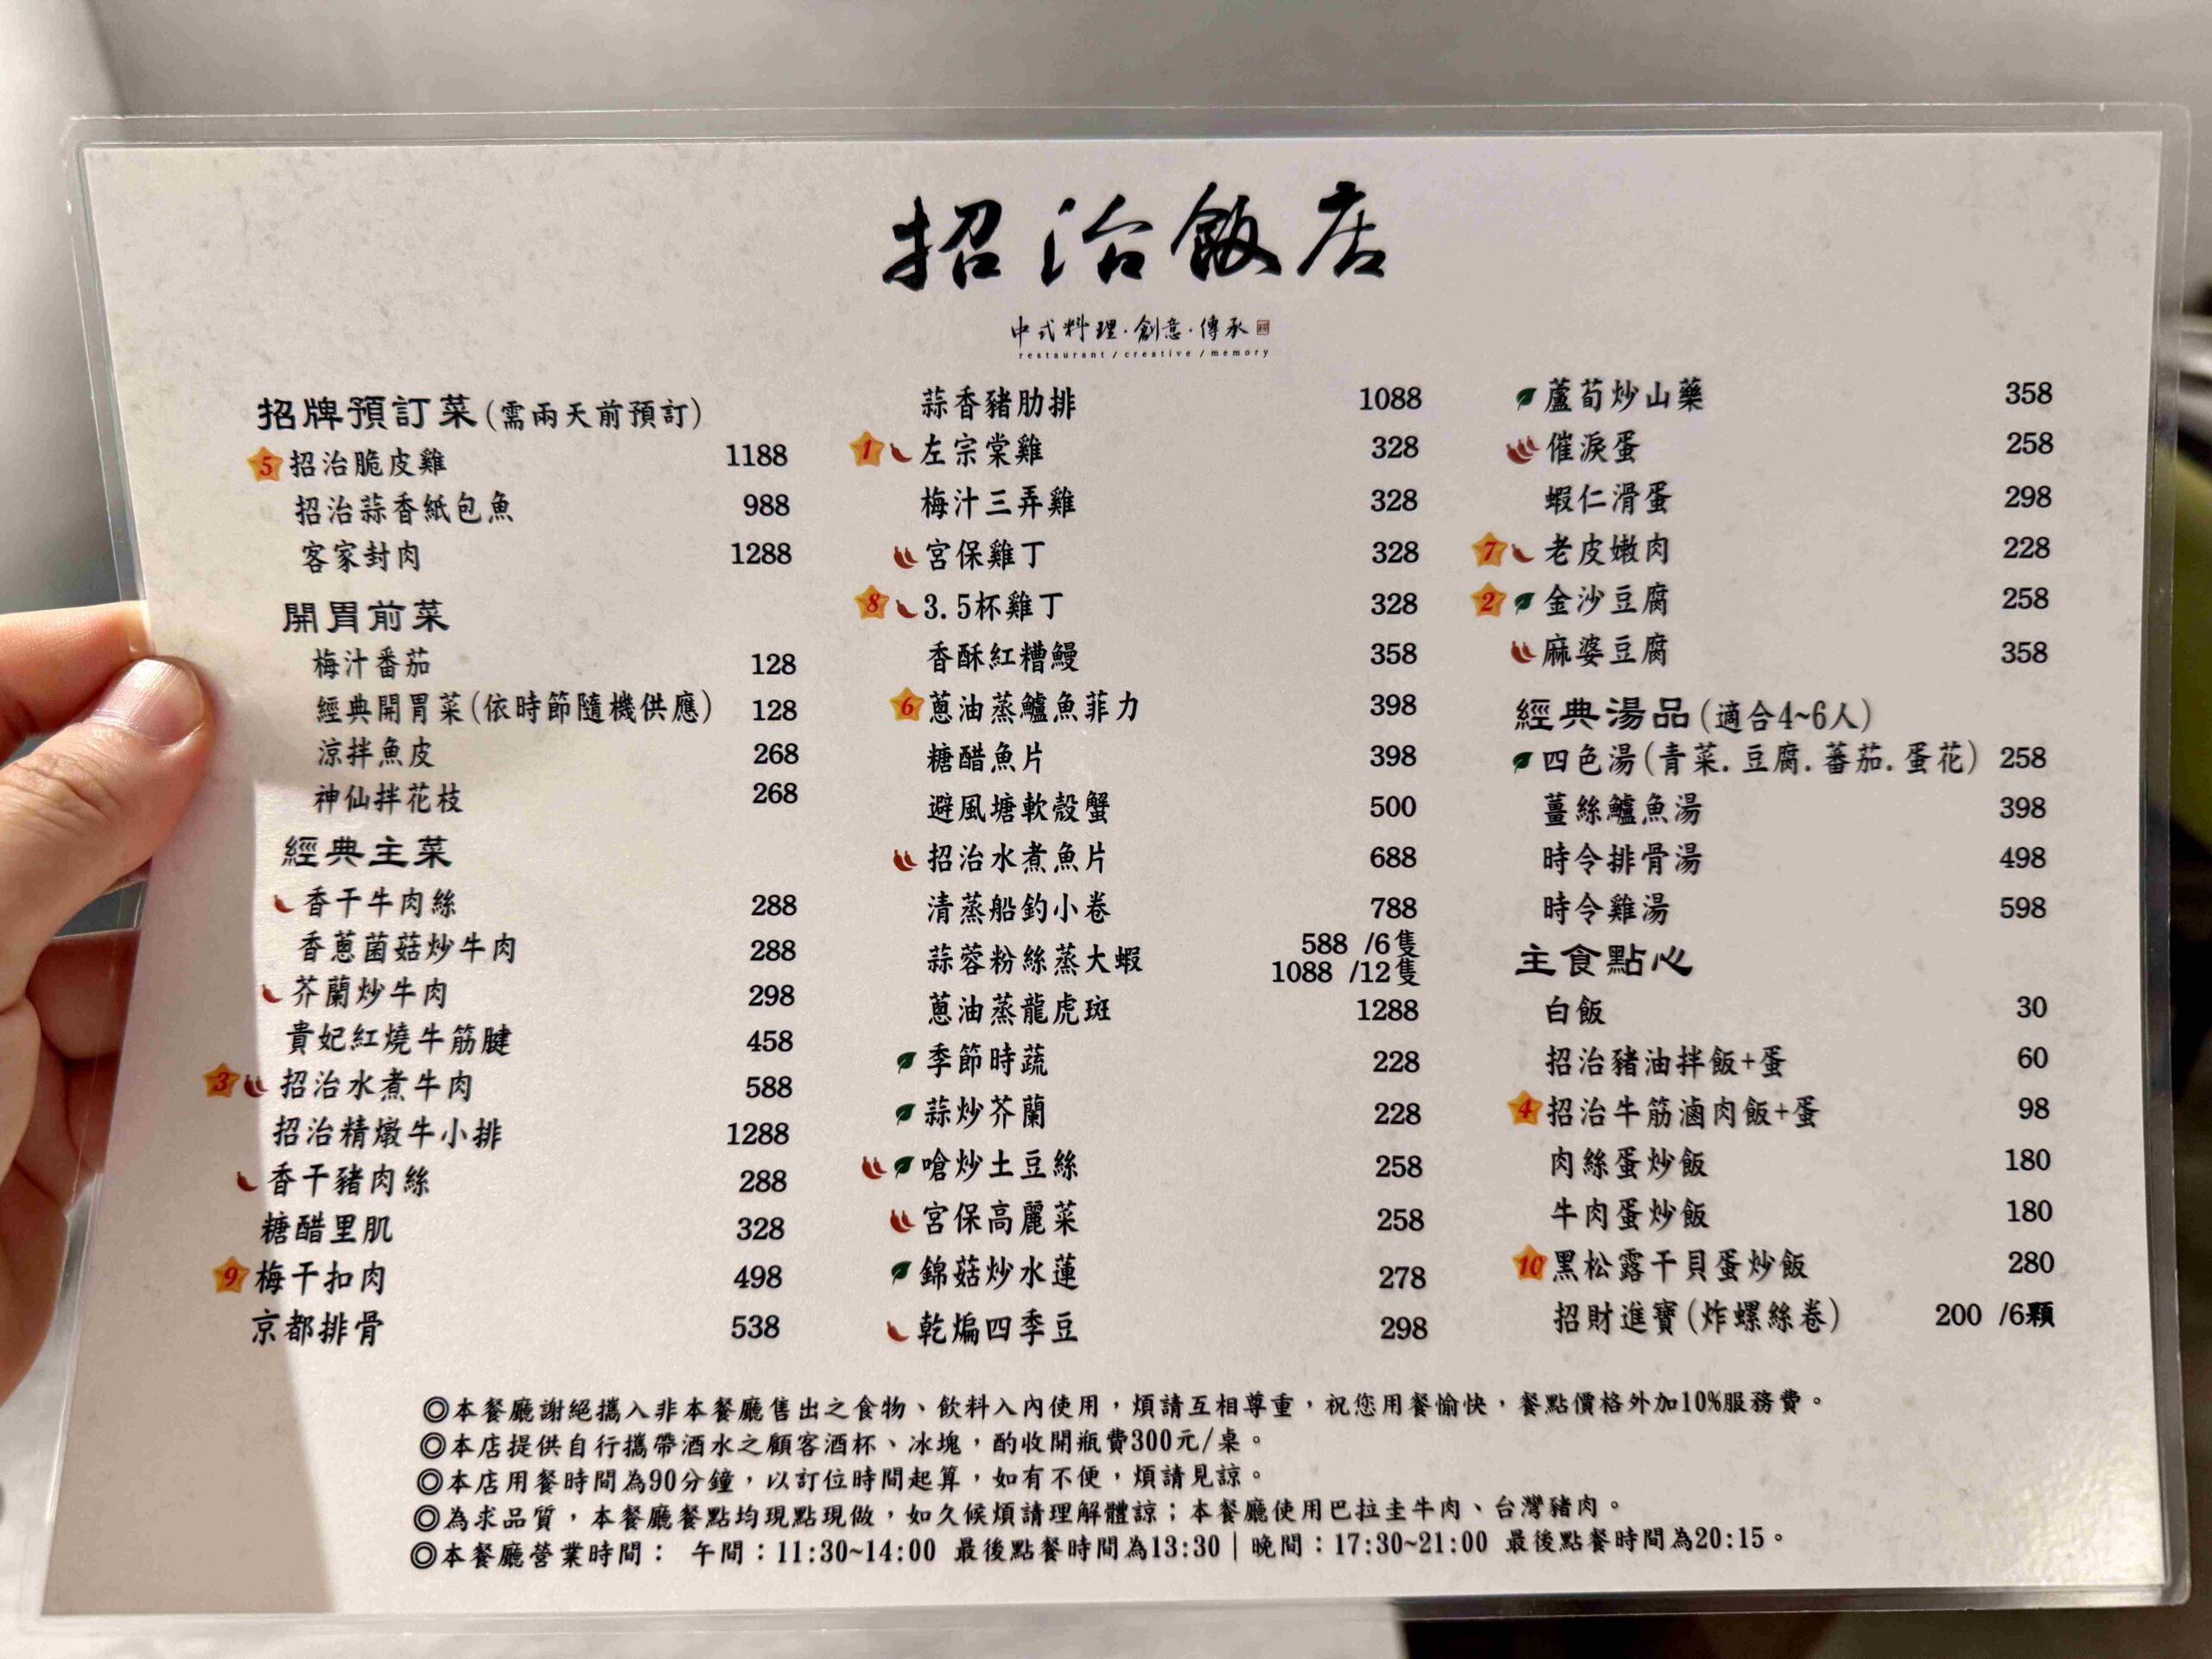 招治飯店
中式料理·創意·傳承
restaurant / creative / memory
招牌預訂菜(需兩天前預訂)
5 招治脆皮雞 1188
招治蒜香紙包魚 988
客家封肉 1288
開胃前菜
梅汁番茄 128
經典開胃菜(依時節隨機供應) 128
涼拌魚皮 268
神仙拌花枝 268
經典主菜
香干牛肉絲 288
香蔥菌菇炒牛肉 288
芥蘭炒牛肉 298
貴妃紅燒牛筋腱 458
3 招治水煮牛肉 588
招治精燉牛小排 1288
香干豬肉絲 288
糖醋里肌 328
9 梅干扣肉 498
京都排骨 538
蒜香豬肋排 1088
1 左宗棠雞 328
梅汁三弄雞 328
宮保雞丁 328
8 3.5杯雞丁 328
香酥紅糟鰻 358
6 蔥油蒸鱸魚菲力 398
糖醋魚片 398
避風塘軟殼蟹 500
招治水煮魚片 688
清蒸船釣小卷 788
蒜蓉粉絲蒸大蝦 588 /6隻
1088 /12隻
蔥油蒸龍虎斑 1288
季節時蔬 228
蒜炒芥蘭 228
嗆炒土豆絲 258
宮保高麗菜 258
錦菇炒水蓮 278
乾煸四季豆 298
蘆荀炒山藥 358
催淚蛋 258
蝦仁滑蛋 298
7 老皮嫩肉 228
2 金沙豆腐 258
麻婆豆腐 358
經典湯品(適合4~6人)
四色湯(青菜.豆腐.蕃茄.蛋花) 258
薑絲鱸魚湯 398
時令排骨湯 498
時令雞湯 598
主食點心
白飯 30
招治豬油拌飯+蛋 60
4 招治牛筋滷肉飯+蛋 98
肉絲蛋炒飯 180
牛肉蛋炒飯 180
10 黑松露干貝蛋炒飯 280
招財進寶(炸螺絲卷) 200 /6顆
◎本餐廳謝絕攜入非本餐廳售出之食物、飲料入內使用，煩請互相尊重，祝您用餐愉快，餐點價格外加10%服務費。
◎本店提供自行攜帶酒水之顧客酒杯、冰塊，酌收開瓶費300元/桌。
◎本店用餐時間為90分鐘，以訂位時間起算，如有不便，煩請見諒。
◎為求品質，本餐廳餐點均現點現做，如久候煩請理解體諒；本餐廳使用巴拉圭牛肉、台灣豬肉。
◎本餐廳營業時間： 午間：11:30~14:00 最後點餐時間為13:30｜晚間：17:30~21:00 最後點餐時間為20:15。